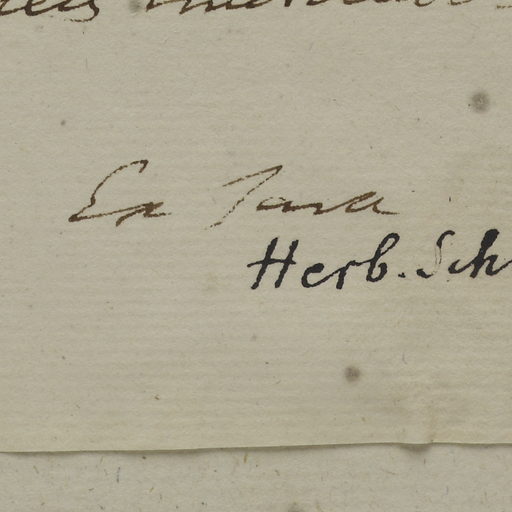 Ex Java
Herb. Sch